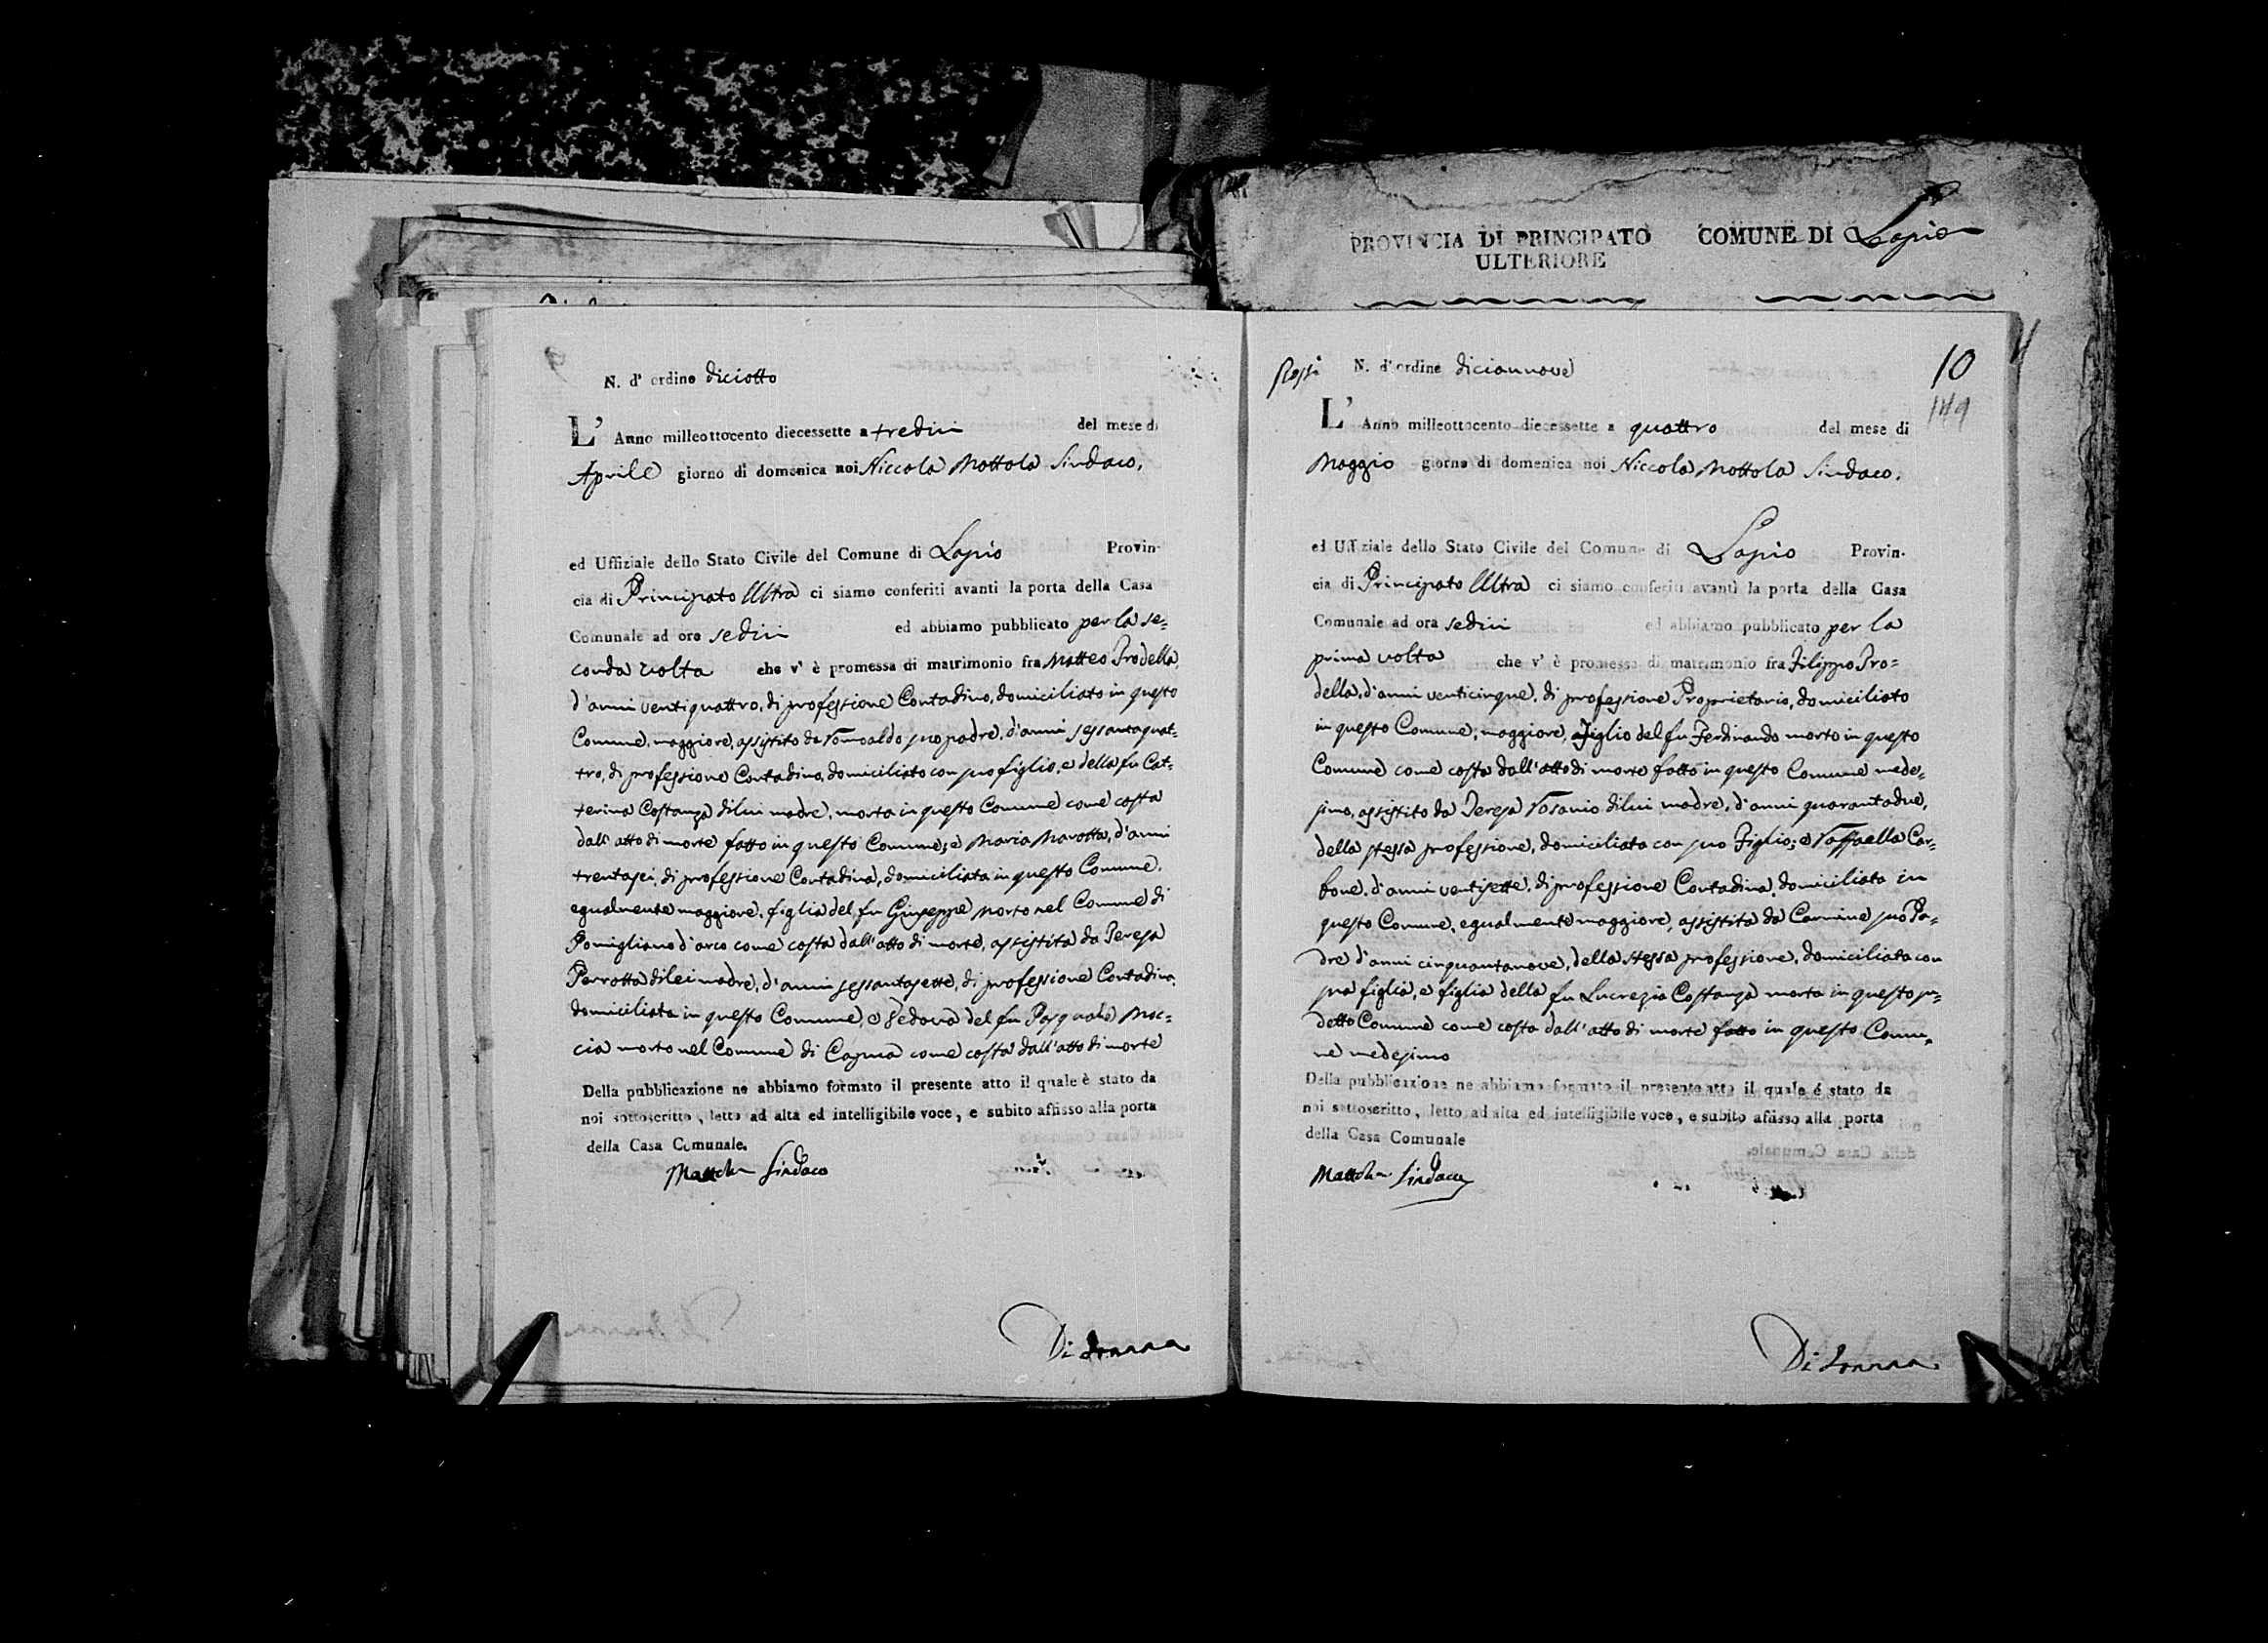 PROVINCIA DI PRINCIPATO ULTERIORE
COMUNE DI Lapio
N. d' ordine diciotto
L' Anno milleottocento diecessette a tredici del mese di
Aprile giorno di domenica noi Niccola Mottola Sindaco,
ed Uffiziale dello Stato Civile del Comune di Lapio Provin-
cia di Principato Ultra ci siamo conferiti avanti la porta della Casa
Comunale ad ore sedici ed abbiamo pubblicato per la se=
conda volta che v' è promessa di matrimonio fra Matteo Prodella,
d'anni ventiquattro, di professione Contadino, domiciliato in questo
Comune, maggiore, assistito da Romoaldo suo padre, d'anni sessantaquat=
tro, di professione Contadino, domiciliato con suo figlio, e della fu Cat=
terina Costanza di lui madre, morta in questo Comune come costa
dall' atto di morte fatto in questo Comune; e Maria Marotta, d'anni
trentasei, di professione Contadina, domiciliata in questo Comune,
egualmente maggiore, figlia del fu Giuseppe morto nel Comune di
Pomigliano d'arco come costa dall' atto di morte, assistita da Teresa
Perrotta di lei madre, d'anni sessantasette, di professione Contadina,
domiciliata in questo Comune, e Vedova del fu Pasquale Moc=
cia morto nel Comune di Capua come costa dall' atto di morte
Della pubblicazione ne abbiamo formato il presente atto il quale è stato da
noi sottoscritto, letto ad alta ed intelligibile voce, e subito affisso alla porta
della Casa Comunale.
Mattola Sindaco
Di Donna
10
149
N. d' ordine diciannove
L' Anno milleottocento diecessette a quattro del mese di
Maggio giorno di domenica noi Niccola Mottola Sindaco,
ed Uffiziale dello Stato Civile del Comune di Lapio Provin-
cia di Principato Ultra ci siamo conferiti avanti la porta della Casa
Comunale ad ora sedici ed abbiamo pubblicato per la
prima volta che v' è promessa di matrimonio fra Filippo Pro=
della, d'anni venticinque, di professione Proprietario, domiciliato
in questo Comune, maggiore, figlio del fu Ferdinando morto in questo
Comune come costa dall' atto di morte fatto in questo Comune mede=
simo, assistito da Teresa Rosanio di lui madre, d'anni quarantadue,
della stessa professione, domiciliata con suo Figlio; e Raffaella Car=
bone, d'anni ventisette, di professione Contadina, domiciliata in
questo Comune, egualmente maggiore, assistita da Carmine suo Pa=
dre d'anni cinquantanove, della stessa professione, domiciliata con
sua figlia, e figlia della fu Lucrezia Costanza morta in questo su=
detto Comune come costa dall' atto di morte fatto in questo Comu=
ne medesimo
Della pubblicazione ne abbiamo formato il presente atto il quale é stato da
noi sottoscritto, letto ad alta ed intelligibile voce, e subito affisso alla porta
della Casa Comunale
Mattola Sindaco
Di Donna